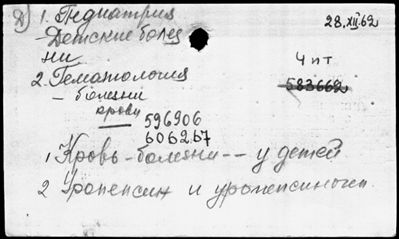 8) 1. Педиатрия
28.XII.62
Детские болез
ни
Чпт
2. Гематология
583662
– болезни
крови
596906
606267
1 Кровь - болезни -- у детей
2 Уропепсин и уропепсиноген